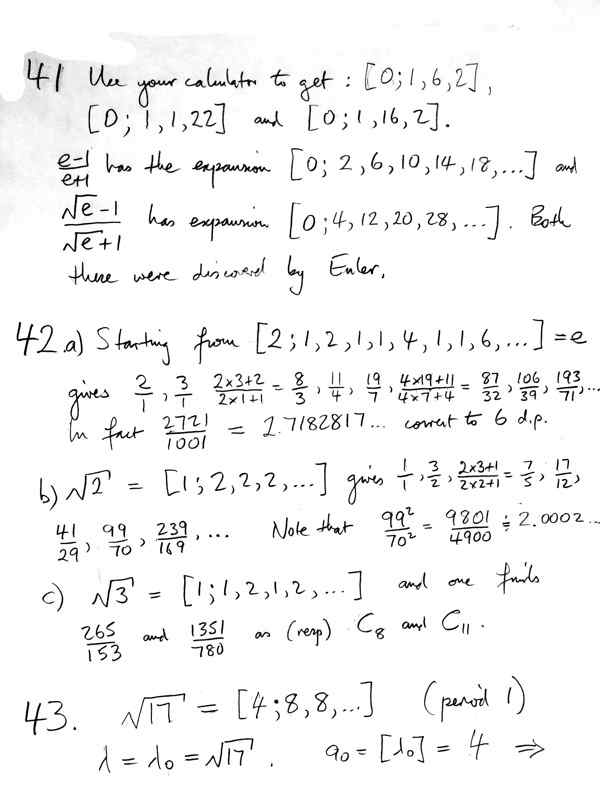 41 Use your calculator to get : [0;1,6,2],
[0; 1,1,22] and [0;1,16,2].
e-1/e+1 has the expansion [0; 2,6,10,14,18,...] and
√e-1/√e+1 has expansion [0;4,12,20,28,...]. Both
these were discovered by Euler.
42.a) Starting from [2;1,2,1,1,4,1,1,6,...] = e
gives 2/1, 3/1, 2×3+2/2×1+1 = 8/3, 11/4, 19/7, 4×19+11/4×7+4 = 87/32, 106/39, 193/71,...
In fact 2721/1001 = 2.7182817... correct to 6 d.p.
b) √2 = [1;2,2,2,...] gives 1/1, 3/2, 2×3+1/2×2+1 = 7/5, 17/12,
41/29, 99/70, 239/169, ... Note that 99²/70² = 9801/4900 ≑ 2.0002...
c) √3 = [1;1,2,1,2,...] and one finds
265/153 and 1351/780 as (resp) C₈ and C₁₁.
43. √17 = [4;8,8,...] (period 1)
λ = λ₀ = √17. a₀ = [λ₀] = 4 ⇒